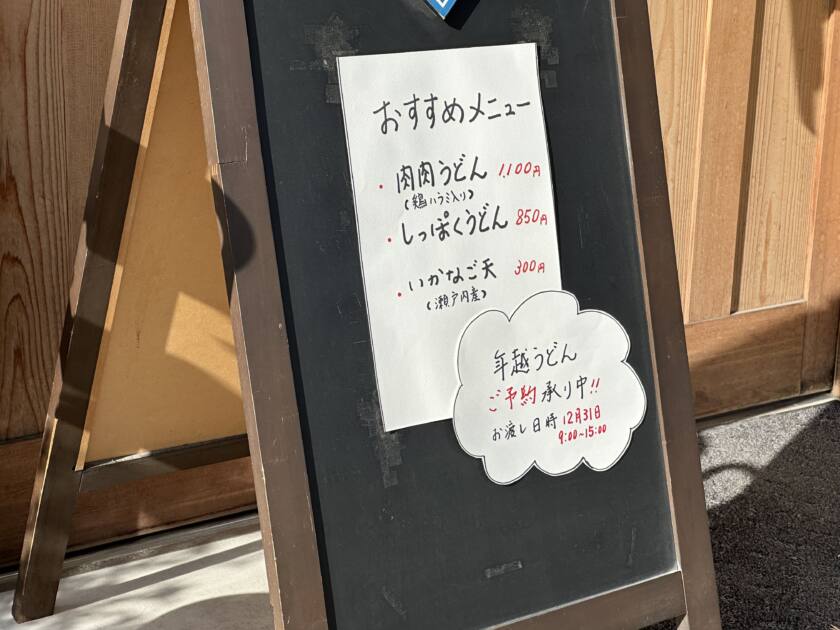 おすすめメニュー
・肉肉うどん 1,100円
(鶏ハラミ入り)
・しっぽくうどん 850円
・いかなご天 300円
(瀬戸内産)
年越うどん
ご予約承り中!!
お渡し日時 12月31日
9:00~15:00